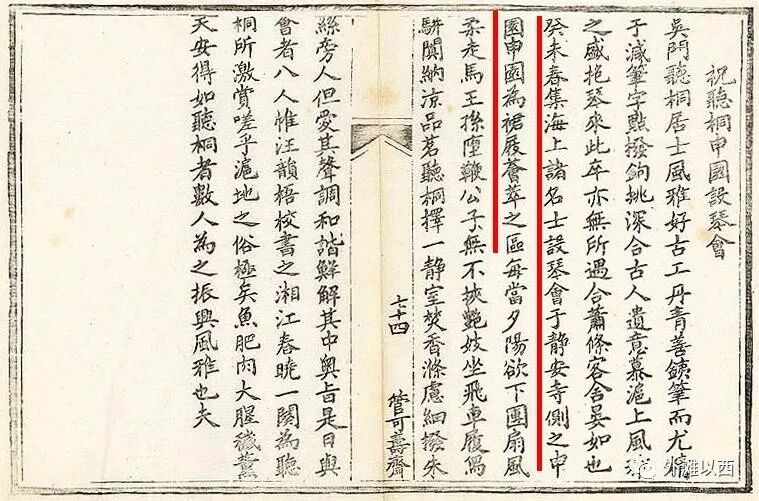 祝聽桐申園設琴會
吳門聽桐居士風雅好古工丹青善銕筆而尤
于減筆字點撥鉤挑深合古人遺意慕滬上風
之盛抱琴來此卒亦無所遇合蕭條客舍晏如也
癸未春集海上諸名士設琴會于靜安寺側之申
園申園為裙屐薈萃之區每當夕陽欲下團扇風
柔走馬王孫墮鞭公子無不挾艷妓坐飛車履舄
駢闐納涼品茗聽桐擇一靜室焚香滌慮細撥朱
七十四
管可壽齋
絲旁人但愛其聲調和諧鮮解其中奧旨是日與
會者八人惟汪韻梧校書之湘江春曉一闋為聽
桐所激賞嗟乎滬地之俗極矣魚肥肉大腥穢薰
天安得如聽桐者數人為之振興風雅也夫
外滩以西